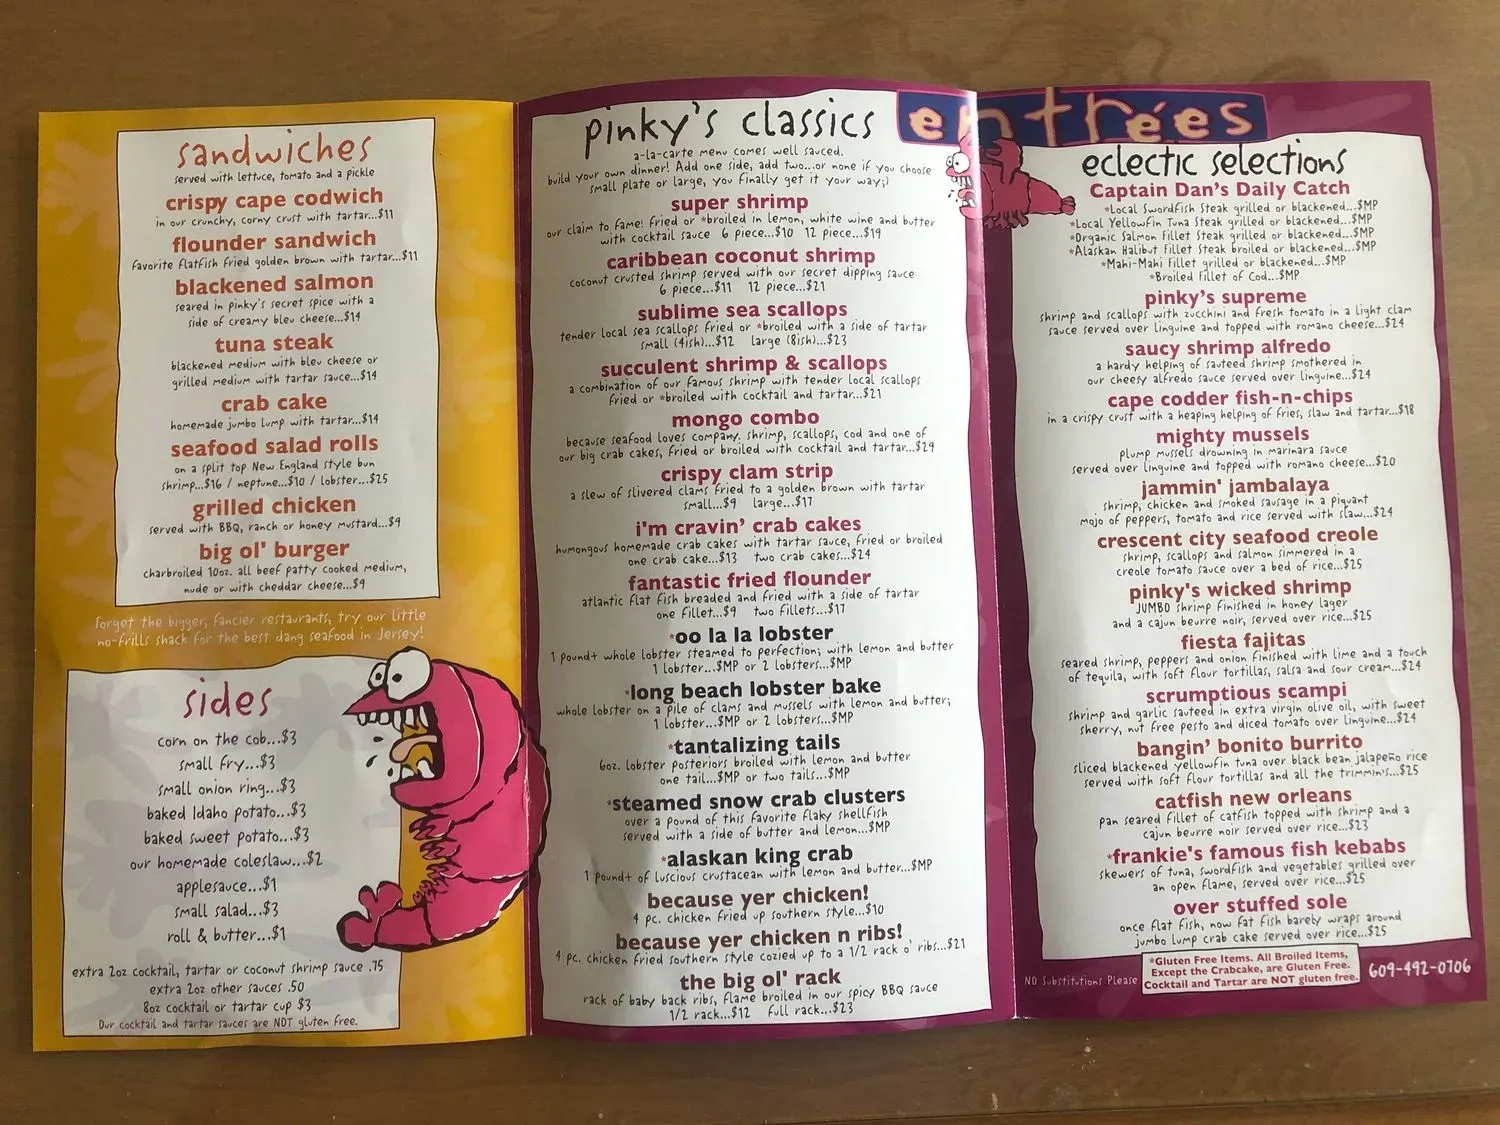 sandwiches
served with lettuce, tomato and a pickle
crispy cape codwich
in our crunchy, corny crust with tartar...$11
flounder sandwich
favorite flatfish fried golden brown with tartar...$11
blackened salmon
seared in pinky's secret spice with a
side of creamy bleu cheese...$14
tuna steak
blackened medium with bleu cheese or
grilled medium with tartar sauce...$14
crab cake
homemade jumbo lump with tartar...$14
seafood salad rolls
on a split top New England style bun
shrimp...$16 / neptune...$10 / lobster...$25
grilled chicken
served with BBQ, ranch or honey mustard...$9
big ol' burger
charbroiled 10oz. all beef patty cooked medium,
nude or with cheddar cheese...$9
forget the bigger, fancier restaurants, try our little
no-frills shack for the best dang seafood in Jersey!
sides
corn on the cob...$3
small fry...$3
small onion ring...$3
baked Idaho potato...$3
baked sweet potato...$3
our homemade coleslaw...$2
applesauce...$1
small salad...$3
roll & butter...$1
extra 2oz cocktail, tartar or coconut shrimp sauce .75
extra 2oz other sauces .50
8oz cocktail or tartar cup $3
Our cocktail and tartar sauces are NOT gluten free.
pinky's classics
a-la-carte menu comes well sauced.
build your own dinner! Add one side, add two...or none if you choose
small plate or large, you finally get it your way;)
super shrimp
our claim to fame! fried or *broiled in lemon, white wine and butter
with cocktail sauce 6 piece...$10 12 piece...$19
caribbean coconut shrimp
coconut crusted shrimp served with our secret dipping sauce
6 piece...$11 12 piece...$21
sublime sea scallops
tender local sea scallops fried or *broiled with a side of tartar
small (4ish)...$12 large (8ish)...$23
succulent shrimp & scallops
a combination of our famous shrimp with tender local scallops
fried or *broiled with cocktail and tartar...$21
mongo combo
because seafood loves company. shrimp, scallops, cod and one of
our big crab cakes, fried or broiled with cocktail and tartar...$29
crispy clam strip
a slew of slivered clams fried to a golden brown with tartar
small...$9 large...$17
i'm cravin' crab cakes
humongous homemade crab cakes with tartar sauce, fried or broiled
one crab cake...$13 two crab cakes...$24
fantastic fried flounder
atlantic flat fish breaded and fried with a side of tartar
one fillet...$9 two fillets...$17
*oo la la lobster
1 pound+ whole lobster steamed to perfection; with lemon and butter
1 lobster...$MP or 2 lobsters...$MP
*long beach lobster bake
whole lobster on a pile of clams and mussels with lemon and butter;
1 lobster...$MP or 2 lobsters...$MP
*tantalizing tails
6oz. lobster posteriors broiled with lemon and butter
one tail...$MP or two tails...$MP
*steamed snow crab clusters
over a pound of this favorite flaky shellfish
served with a side of butter and lemon...$MP
*alaskan king crab
1 pound+ of luscious crustacean with lemon and butter...$MP
because yer chicken!
4 pc. chicken fried up southern style...$10
because yer chicken n ribs!
4 pc. chicken fried southern style cozied up to a 1/2 rack o' ribs...$21
the big ol' rack
rack of baby back ribs, flame broiled in our spicy BBQ sauce
1/2 rack...$12 full rack...$23
entrées
eclectic selections
Captain Dan's Daily Catch
*Local Swordfish Steak grilled or blackened...$MP
*Local Yellowfin Tuna Steak grilled or blackened...$MP
*Organic Salmon Fillet Steak grilled or blackened...$MP
*Alaskan Halibut Fillet Steak broiled or blackened...$MP
*Mahi-Mahi Fillet grilled or blackened...$MP
*Broiled Fillet of Cod...$MP
pinky's supreme
shrimp and scallops with zucchini and fresh tomato in a light clam
sauce served over linguine and topped with romano cheese...$24
saucy shrimp alfredo
a hardy helping of sauteed shrimp smothered in
our cheesy alfredo sauce served over linguine...$24
cape codder fish-n-chips
in a crispy crust with a heaping helping of fries, slaw and tartar...$18
mighty mussels
plump mussels drowning in marinara sauce
served over linguine and topped with romano cheese...$20
jammin' jambalaya
shrimp, chicken and smoked sausage in a piquant
mojo of peppers, tomato and rice served with slaw...$24
crescent city seafood creole
shrimp, scallops and salmon simmered in a
creole tomato sauce over a bed of rice...$25
pinky's wicked shrimp
JUMBO shrimp finished in honey lager
and a cajun beurre noir, served over rice...$25
fiesta fajitas
seared shrimp, peppers and onion finished with lime and a touch
of tequila, with soft flour tortillas, salsa and sour cream...$24
scrumptious scampi
shrimp and garlic sauteed in extra virgin olive oil, with sweet
sherry, nut free pesto and diced tomato over linguine...$24
bangin' bonito burrito
sliced blackened yellowfin tuna over black bean jalapeño rice
served with soft flour tortillas and all the trimmin's...$25
catfish new orleans
pan seared fillet of catfish topped with shrimp and a
cajun beurre noir served over rice...$23
*frankie's famous fish kebabs
skewers of tuna, swordfish and vegetables grilled over
an open flame, served over rice...$25
over stuffed sole
once flat fish, now fat fish barely wraps around
jumbo lump crab cake served over rice...$25
NO Substitutions Please
*Gluten Free Items. All Broiled Items,
Except the Crabcake, are Gluten Free.
Cocktail and Tartar are NOT gluten free.
609-492-0706